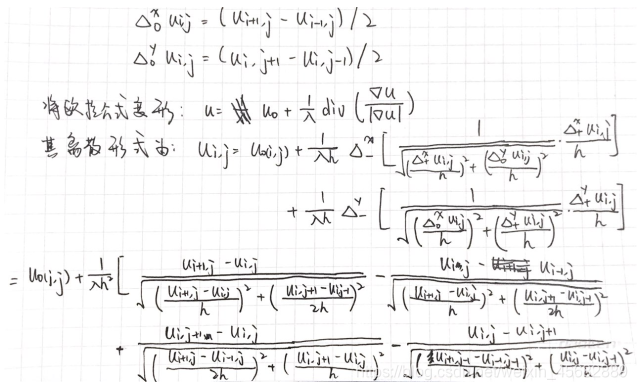 Δ₀ˣ uᵢ,ⱼ = (uᵢ₊₁,ⱼ - uᵢ₋₁,ⱼ)/2
Δ₀ʸ uᵢ,ⱼ = (uᵢ,ⱼ₊₁ - uᵢ,ⱼ₋₁)/2
将欧拉公式变形: u = u₀ + \frac{1}{λ} div (\frac{∇u}{|∇u|})
其离散形式为: u_{i,j} = u_{0(i,j)} + \frac{1}{λh} Δ_-^x [ \frac{1}{\sqrt{(\frac{Δ_+^x u_{i,j}}{h})^2 + (\frac{Δ_0^y u_{i,j}}{h})^2}} · \frac{Δ_+^x u_{i,j}}{h} ]
+ \frac{1}{λh} Δ_-^y [ \frac{1}{\sqrt{(\frac{Δ_0^x u_{i,j}}{h})^2 + (\frac{Δ_+^y u_{i,j}}{h})^2}} · \frac{Δ_+^y u_{i,j}}{h} ]
= u_{0(i,j)} + \frac{1}{λh^2} [ \frac{u_{i+1,j} - u_{i,j}}{\sqrt{(\frac{u_{i+1,j} - u_{i,j}}{h})^2 + (\frac{u_{i,j+1} - u_{i,j-1}}{2h})^2}} - \frac{u_{i,j} - u_{i-1,j}}{\sqrt{(\frac{u_{i,j} - u_{i-1,j}}{h})^2 + (\frac{u_{i,j+1} - u_{i,j-1}}{2h})^2}}
+ \frac{u_{i,j+1} - u_{i,j}}{\sqrt{(\frac{u_{i+1,j} - u_{i-1,j}}{2h})^2 + (\frac{u_{i,j+1} - u_{i,j}}{h})^2}} - \frac{u_{i,j} - u_{i,j+1}}{\sqrt{(\frac{u_{i+1,j-1} - u_{i-1,j-1}}{2h})^2 + (\frac{u_{i,j} - u_{i,j-1}}{h})^2}}